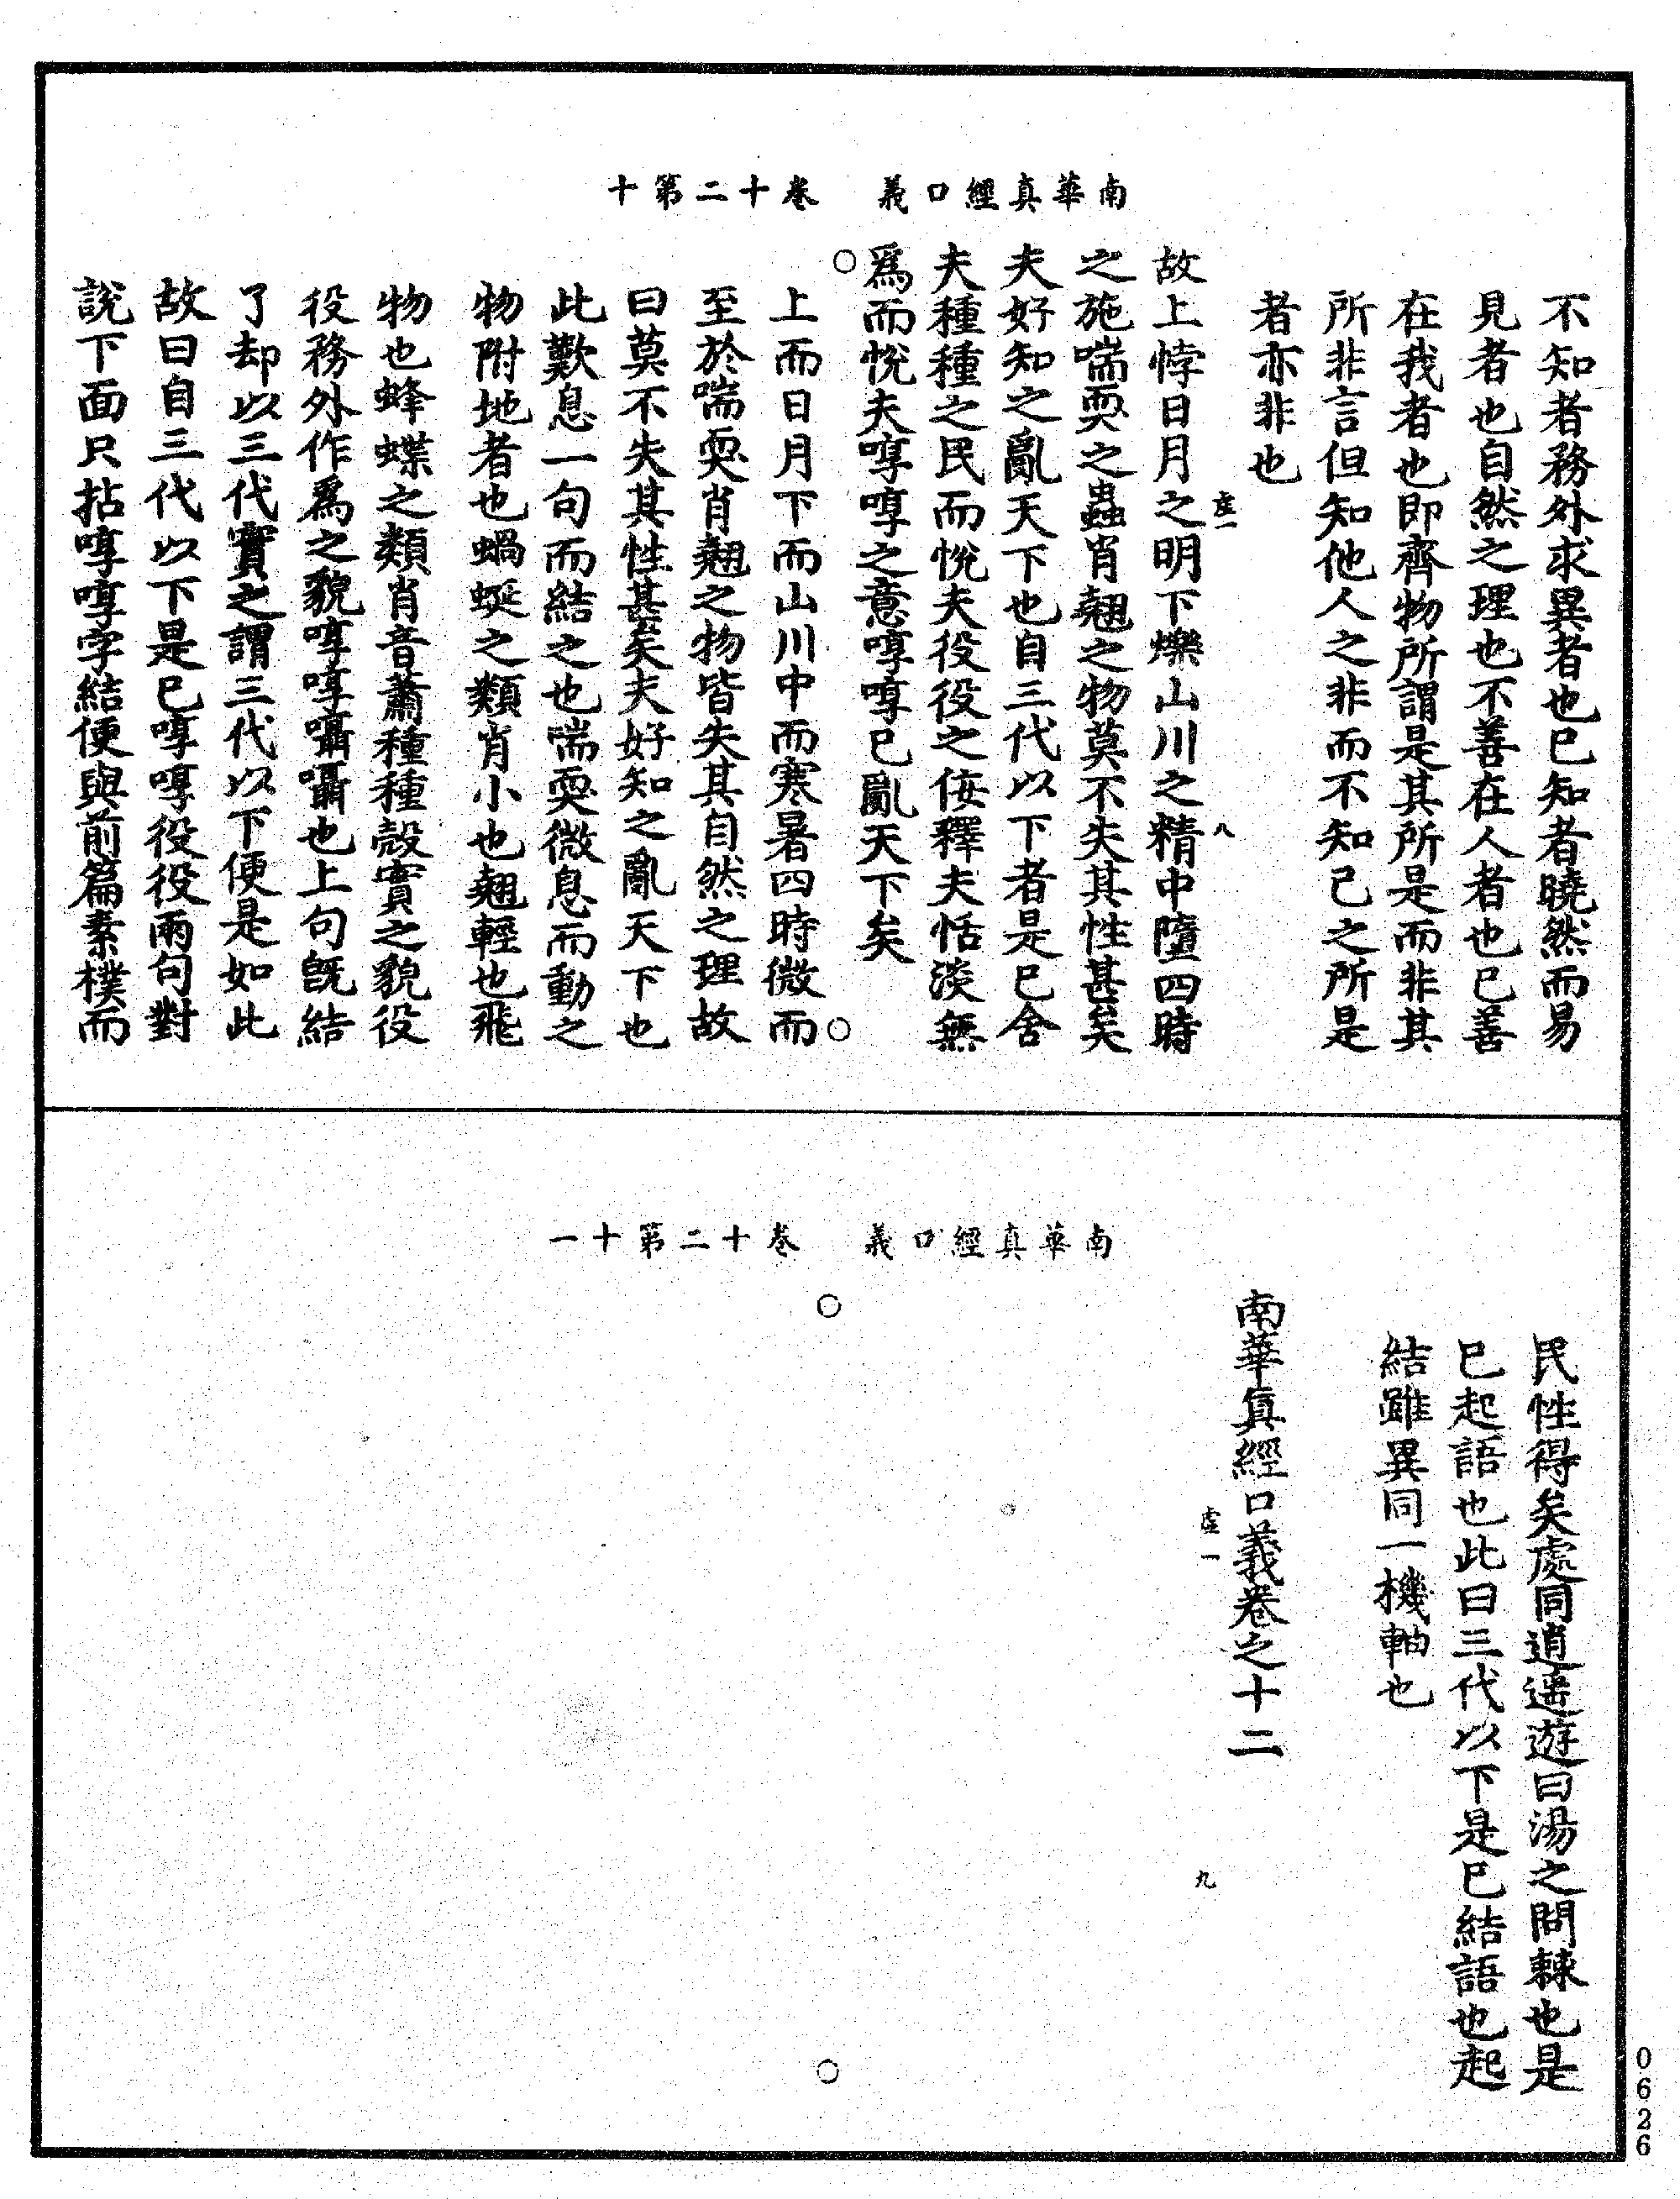 南華真經口義　卷十二第十
不知者務外求異者也已知者曉然而易
見者也自然之理也不善在人者也已善
在我者也即齊物所謂是其所是而非其
所非言但知他人之非而不知己之所是
者亦非也
故上悖日月之明下爍山川之精中墮四時
之施喘耎之蟲肖翹之物莫不失其性甚矣
夫好知之亂天下也自三代以下者是已舍
夫種種之民而悅夫役役之佞釋夫恬淡無
爲而悅夫啍啍之意啍啍已亂天下矣
上而日月下而山川中而寒暑四時微而
至於喘耎肖翹之物皆失其自然之理故
曰莫不失其性甚矣夫好知之亂天下也
此歎息一句而結之也喘耎微息而動之
物附地者也蝸蜒之類肖小也翹輕也飛
物也蜂蝶之類肖音蕭種種慤實之貌役
役務外作爲之貌啍啍囁囁也上句旣結
了却以三代實之謂三代以下便是如此
故曰自三代以下是已啍啍役役兩句對
說下面只拈啍啍字結便與前篇素樸而
虛一
八
南華真經口義　卷十二第十一
民性得矣處同逍遙遊曰湯之問棘也是
已起語也此曰三代以下是已結語也起
結雖異同一機軸也
南華真經口義卷之十二
虛一
九
0626